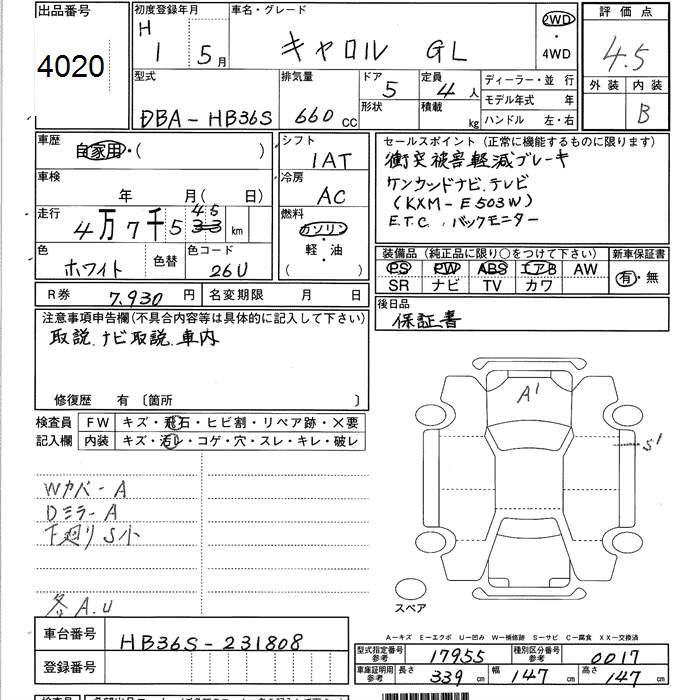 出品番号
4020
初度登録年月
H 1年 5月
車名・グレード
キャロル GL
2WD
・
4WD
評価点
4.5
外装 内装
B
型式
DBA-HB36S
排気量
660 CC
ドア
5
形状
定員
4人
積載
kg
ディーラー・並 行
モデル年式 年
ハンドル 左・右
車歴
自家用・( )
車検
年 月( 日)
走行
4万7千5 33 45 km
色
ホワイト
色替
色コード
26U
シフト
IAT
冷房
AC
燃料
ガソリン
・
軽・油
( )
セールスポイント (正常に機能するものに限ります)
衝突被害軽減ブレーキ
ケンウッドナビ、テレビ
(KXM-E503W)
E.T.C、バックモニター
装備品 (純正品に限り○をつけて下さい)
PS PW ABS エアB AW
SR ナビ TV カワ
新車保証書
有・無
R券 7,930 円
名変期限 月 日
後日品
保証書
注意事項申告欄(不具合内容等は具体的に記入して下さい)
取説、ナビ取説、車内
修復歴 有 〔箇所 〕
検査員
記入欄
FW キズ・飛石・ヒビ割・リペア跡・×要
内装 キズ・汚レ・コゲ・穴・スレ・キレ・破レ
Wカバ-A
Dミラ-A
下廻りS小
各A.U
A1
S1
スペア
車台番号
HB36S-231808
登録番号
A-キズ E-エクボ U-凹み W-補修跡 S-サビ C-腐食 XX-交換済
型式指定番号
参考
17955
種別区分番号
参考
0017
車庫証明用
参考
長さ 339 cm 幅 147 cm 高さ 147 cm